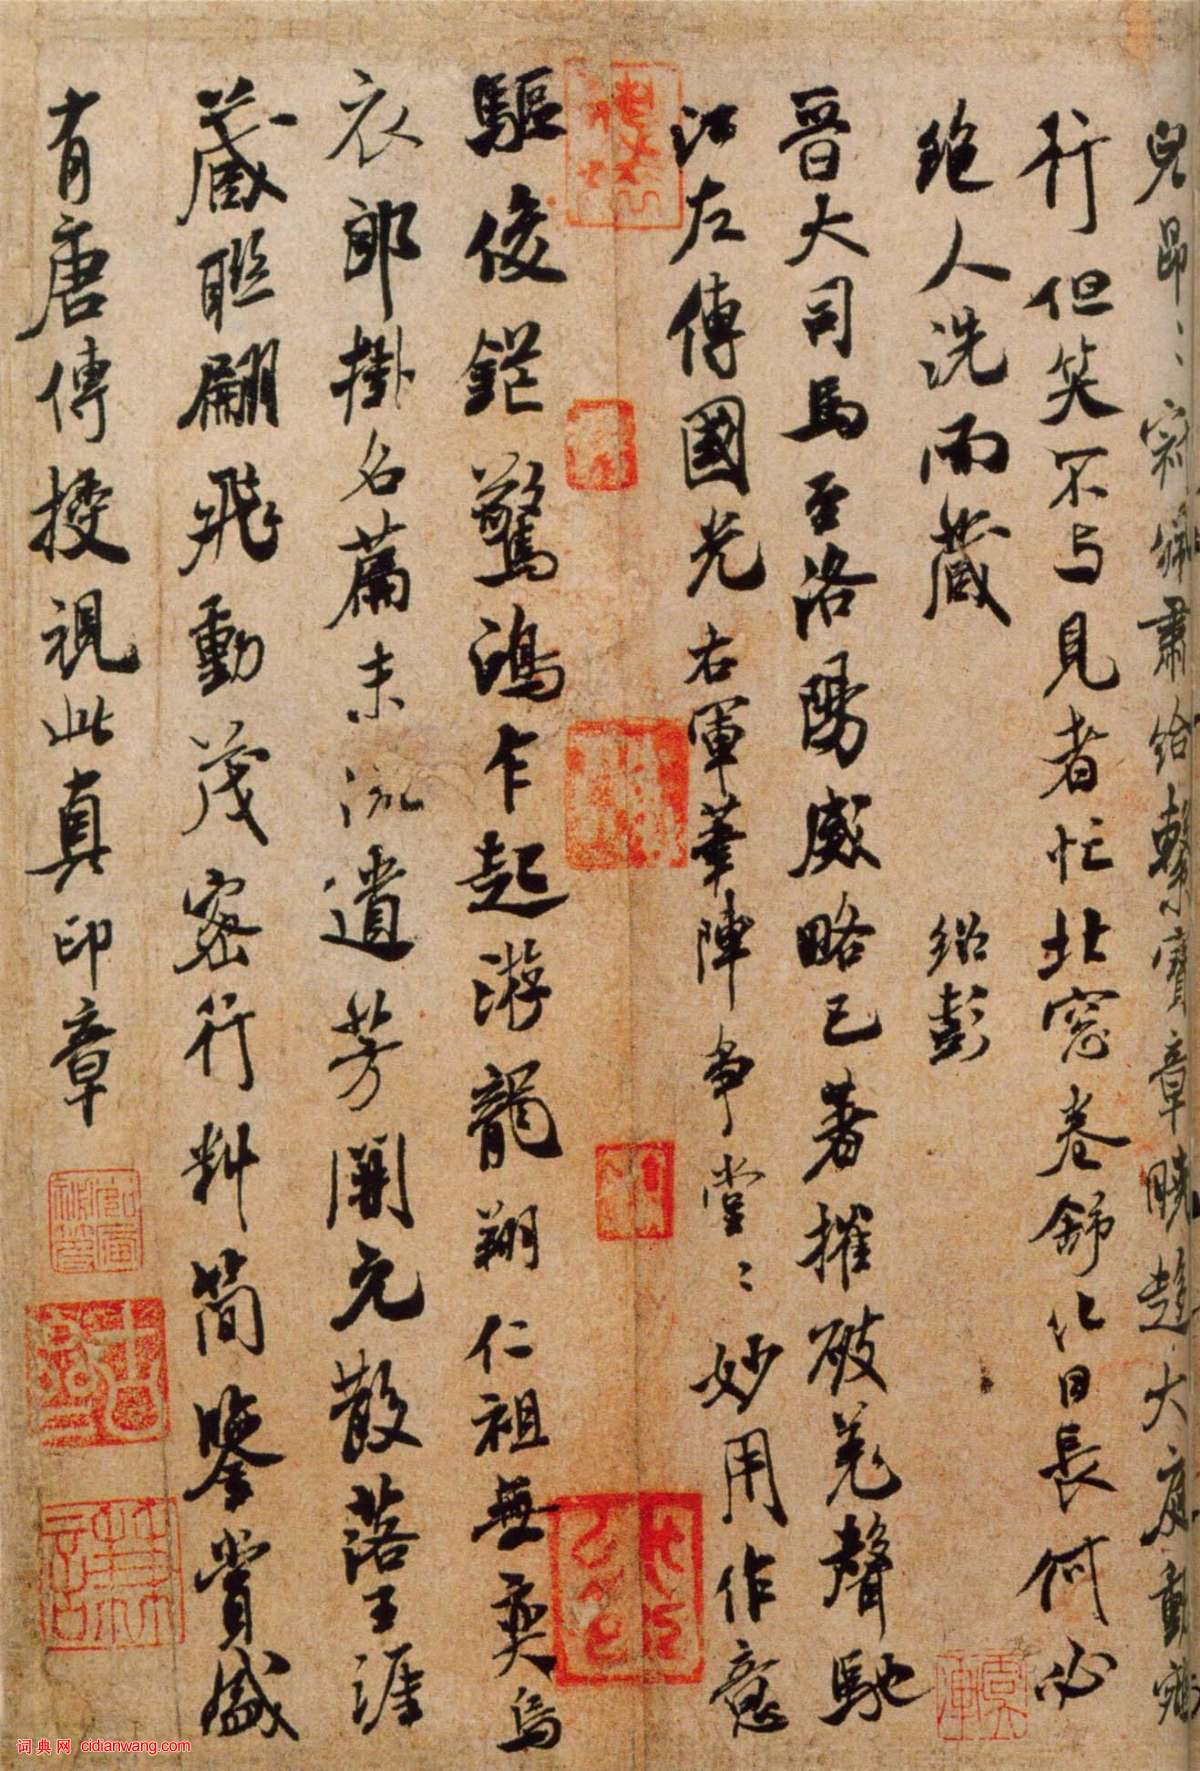 兒昂〻
肅給
寶章曉趨大庭
行但笑不与見者忙北窗卷舒化日長何必
絶人洗而藏
紹彭
晋大司馬至洛陽威略已著摧破羌聲馳
江左傳國光右軍筆陣爭堂〻妙用作意
驅俊鋩驚鴻乍起游龍翔仁祖無奕烏
衣郎掛名篇末流遺芳開元散落王涯
藏聯翩飛動茂密行斜簡鑒賞盛
有唐傳授視此真印章
词典网 cidianwang.com